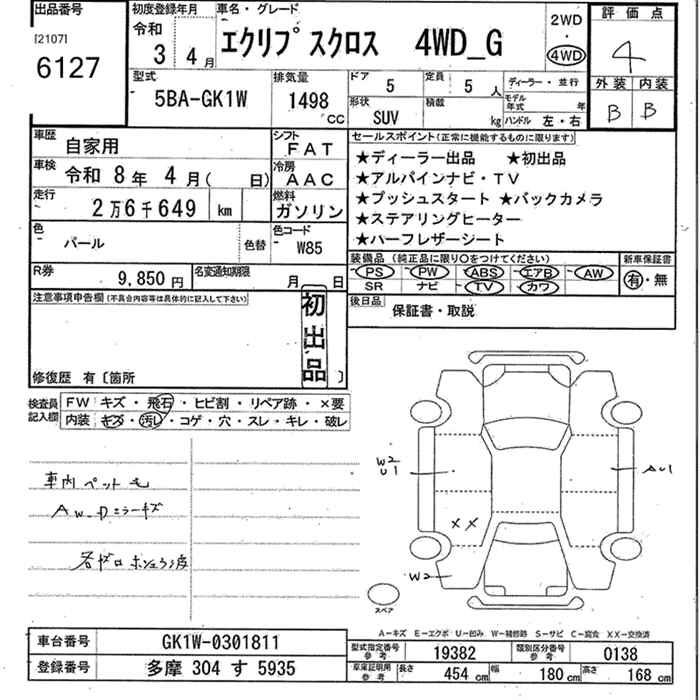 出品番号
[2107]
6127
初度登録年月
令和
3 4月
車名・グレード
エクリプスクロス 4WD_G
2WD
・
4WD
評価点
4
外装 内装
B B
型式
5BA-GK1W
排気量
1498
CC
ドア 5
定員 5人
ディーラー・並行
形状 SUV
積載 kg
モデル年式 年
ハンドル 左・右
車歴 自家用
シフト FAT
車検 令和 8年 4月( 日)
冷房 AAC
走行 2万6千649 km
燃料 ガソリン
色 パール
色替
色コード W85
R券 9,850円
名変通知期限 月 日
セールスポイント(正常に機能するものに限ります)
★ディーラー出品 ★初出品
★アルパインナビ・TV
★プッシュスタート ★バックカメラ
★ステアリングヒーター
★ハーフレザーシート
装備品 (純正品に限り○をつけてください)
PS PW ABS エアB AW
SR ナビ TV カワ
新車保証書
有・無
後日品 保証書・取説
注意事項申告欄(不具合内容等は具体的に記入して下さい)
初出品
修復歴 有〔箇所 〕
検査員記入欄
FW キズ・飛石・ヒビ割・リペア跡・×要
内装 キズ・汚レ・コゲ・穴・スレ・キレ・破レ
車内ペット毛
AW、Dミラーキズ
W2
U1
AU1
XX
W2
スペア
A－キズ E－エクボ U－凹み W－補修跡 S－サビ C－腐食 XX－交換済
車台番号 GK1W-0301811
登録番号 多摩 304 す 5935
型式指定番号 参考 19382
類別区分番号 参考 0138
車庫証明用 参考 長さ 454 cm 幅 180 cm 高さ 168 cm